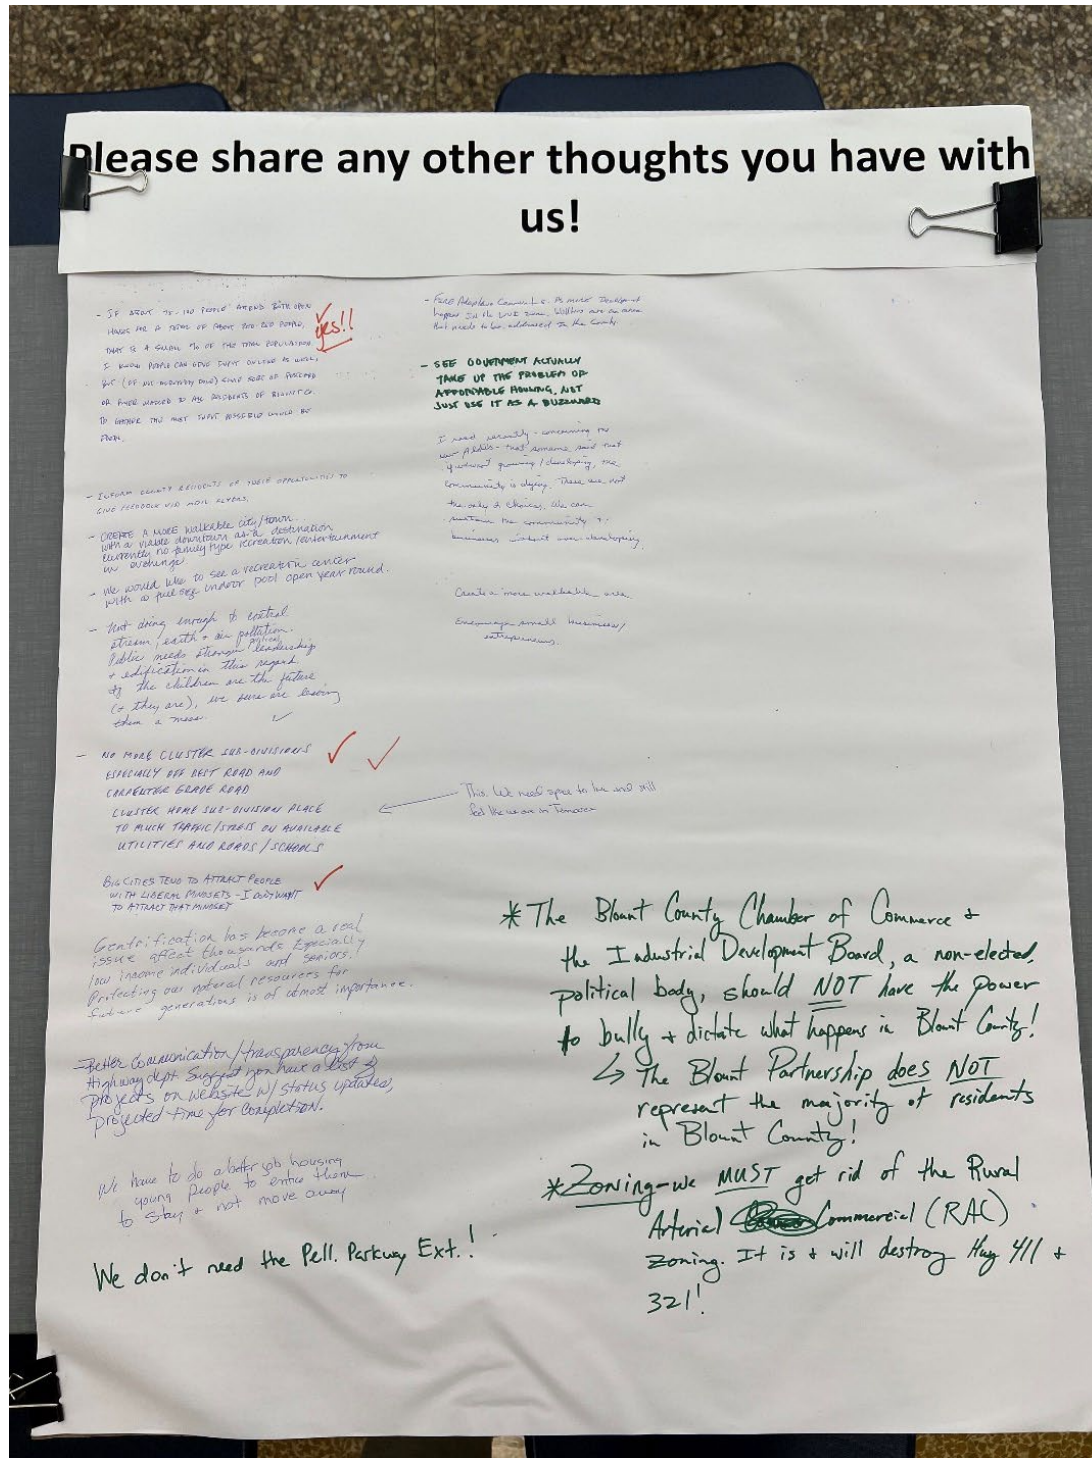 Please share any other thoughts you have with
us!
- IF ABOUT 75-100 PEOPLE ATTEND BOTH OPEN
HOUSES FOR A TOTAL OF ABOUT 200 PEOPLE,
THAT IS A SMALL % OF THE TOTAL POPULATION.
yes!!
I KNOW PEOPLE CAN GIVE INPUT ONLINE AS WELL,
BUT (IF NOT ALREADY DONE) SOME SORT OF POSTCARD
OR FLYER MAILED TO ALL RESIDENTS OF BLOUNT CO.
TO GATHER THE MOST INPUT POSSIBLE WOULD BE
- INFORM COUNTY RESIDENTS OF THESE OPPORTUNITIES TO
GIVE FEEDBACK VIA MAIL FLYERS.
- CREATE A MORE walkable city/town
with a viable downtown as a destination
currently no family type recreation/entertainment
in exchange
- We would like to see a recreation center
with a full size indoor pool open year round.
- Not doing enough to control
stream, earth + air pollution.
Public needs stronger political leadership
+ edification in this regard.
If the children are the future
(+ they are), we sure are leaving
them a mess.
- NO MORE CLUSTER SUB-DIVISIONS
ESPECIALLY OFF BEST ROAD AND
CARPENTER GRADE ROAD
CLUSTER HOME SUB-DIVISION PLACE
TO MUCH TRAFFIC/STRESS ON AVAILABLE
UTILITIES AND ROADS/SCHOOLS
BIG CITIES TEND TO ATTRACT PEOPLE
WITH LIBERAL MINDSETS - I DON'T WANT
TO ATTRACT THAT MINDSET
Gentrification has become a real
issue affect thousands Especially
low income individuals and seniors!
Protecting our natural resources for
future generations is of utmost importance.
- Better communication/transparency from
Highway dept. Suggest you have a list of
projects on website w/ status updates,
projected time for completion.
We have to do a better job housing
young people to entice them
to stay + not move away
We don't need the Pell. Parkway Ext.!
- Fire Adaptive Communities. As more Development
happens in the WUI zone, Wildfires are an area
that needs to be addressed in the County.
- SEE GOVERNMENT ACTUALLY
TAKE UP THE PROBLEM OF
AFFORDABLE HOUSING, NOT
JUST USE IT AS A BUZZWORD
I read recently - concerning the
new - that someone said that
if we're not growing/developing, the
community is dying. These are not
the only 2 choices. We can
sustain the community +
businesses without over-developing.
Create a more walkable area
Encourage small business/
entrepreneurs.
This. We need space to live and still
feel like we are in Tennessee
* The Blount County Chamber of Commerce +
the Industrial Development Board, a non-elected,
political body, should NOT have the power
to bully + dictate what happens in Blount County!
↳ The Blount Partnership does NOT
represent the majority of residents
in Blount County!
* Zoning - we MUST get rid of the Rural
Arterial Commercial (RAC)
zoning. It is + will destroy Hwy 411 +
321!